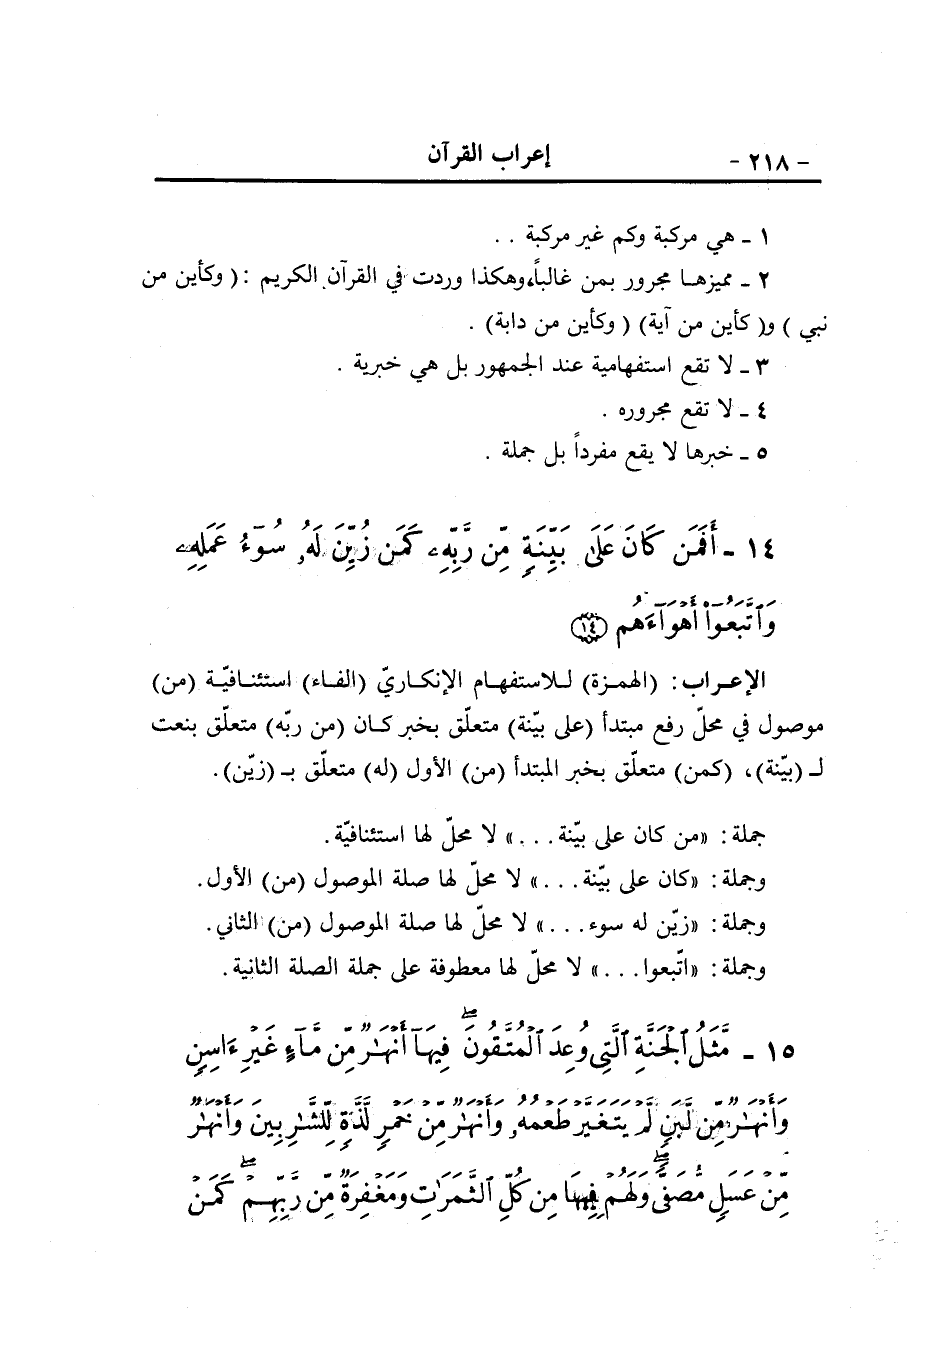 - ٢١٨ -
إعراب القرآن
١ - هي مركبة وكم غير مركبة . .
٢ - مميزها مجرور بمن غالباً، وهكذا وردت في القرآن الكريم : ( وكأين من
نبي ) و( كأين من آية) ( وكأين من دابة) .
٣ - لا تقع استفهامية عند الجمهور بل هي خبرية .
٤ - لا تقع مجروره .
٥ - خبرها لا يقع مفرداً بل جملة .
١٤ - أَفَمَن كَانَ عَلَىٰ بَيِّنَةٍ مِّن رَّبِّهِۦ كَمَن زُيِّنَ لَهُۥ سُوٓءُ عَمَلِهِۦ
وَٱتَّبَعُوٓا۟ أَهْوَآءَهُم ١٤
الإعراب: (الهمزة) للاستفهام الإنكاريّ (الفاء) استئنافيّة (من)
موصول في محلّ رفع مبتدأ (على بيّنة) متعلّق بخبر كان (من ربّه) متعلّق بنعت
لـ (بيّنة)، (كمن) متعلّق بخبر المبتدأ (من) الأول (له) متعلّق بـ (زيّن).
جملة: «من كان على بيّنة. . .» لا محلّ لها استئنافيّة.
وجملة: «كان على بيّنة. . .» لا محلّ لها صلة الموصول (من) الأول.
وجملة: «زيّن له سوء. . .» لا محلّ لها صلة الموصول (من) الثاني.
وجملة: «اتّبعوا. . .» لا محلّ لها معطوفة على جملة الصلة الثانية.
١٥ - مَّثَلُ ٱلْجَنَّةِ ٱلَّتِي وُعِدَ ٱلْمُتَّقُونَ ۖ فِيهَآ أَنْهَـٰرٌ مِّن مَّآءٍ غَيْرِ ءَاسِنٍ
وَأَنْهَـٰرٌ مِّن لَّبَنٍ لَّمْ يَتَغَيَّرْ طَعْمُهُۥ وَأَنْهَـٰرٌ مِّنْ خَمْرٍ لَّذَّةٍ لِّلشَّـٰرِبِينَ وَأَنْهَـٰرٌ
مِّنْ عَسَلٍ مُّصَفًّى ۖ وَلَهُمْ فِيهَا مِن كُلِّ ٱلثَّمَرَٰتِ وَمَغْفِرَةٌ مِّن رَّبِّهِمْ ۖ كَمَنْ